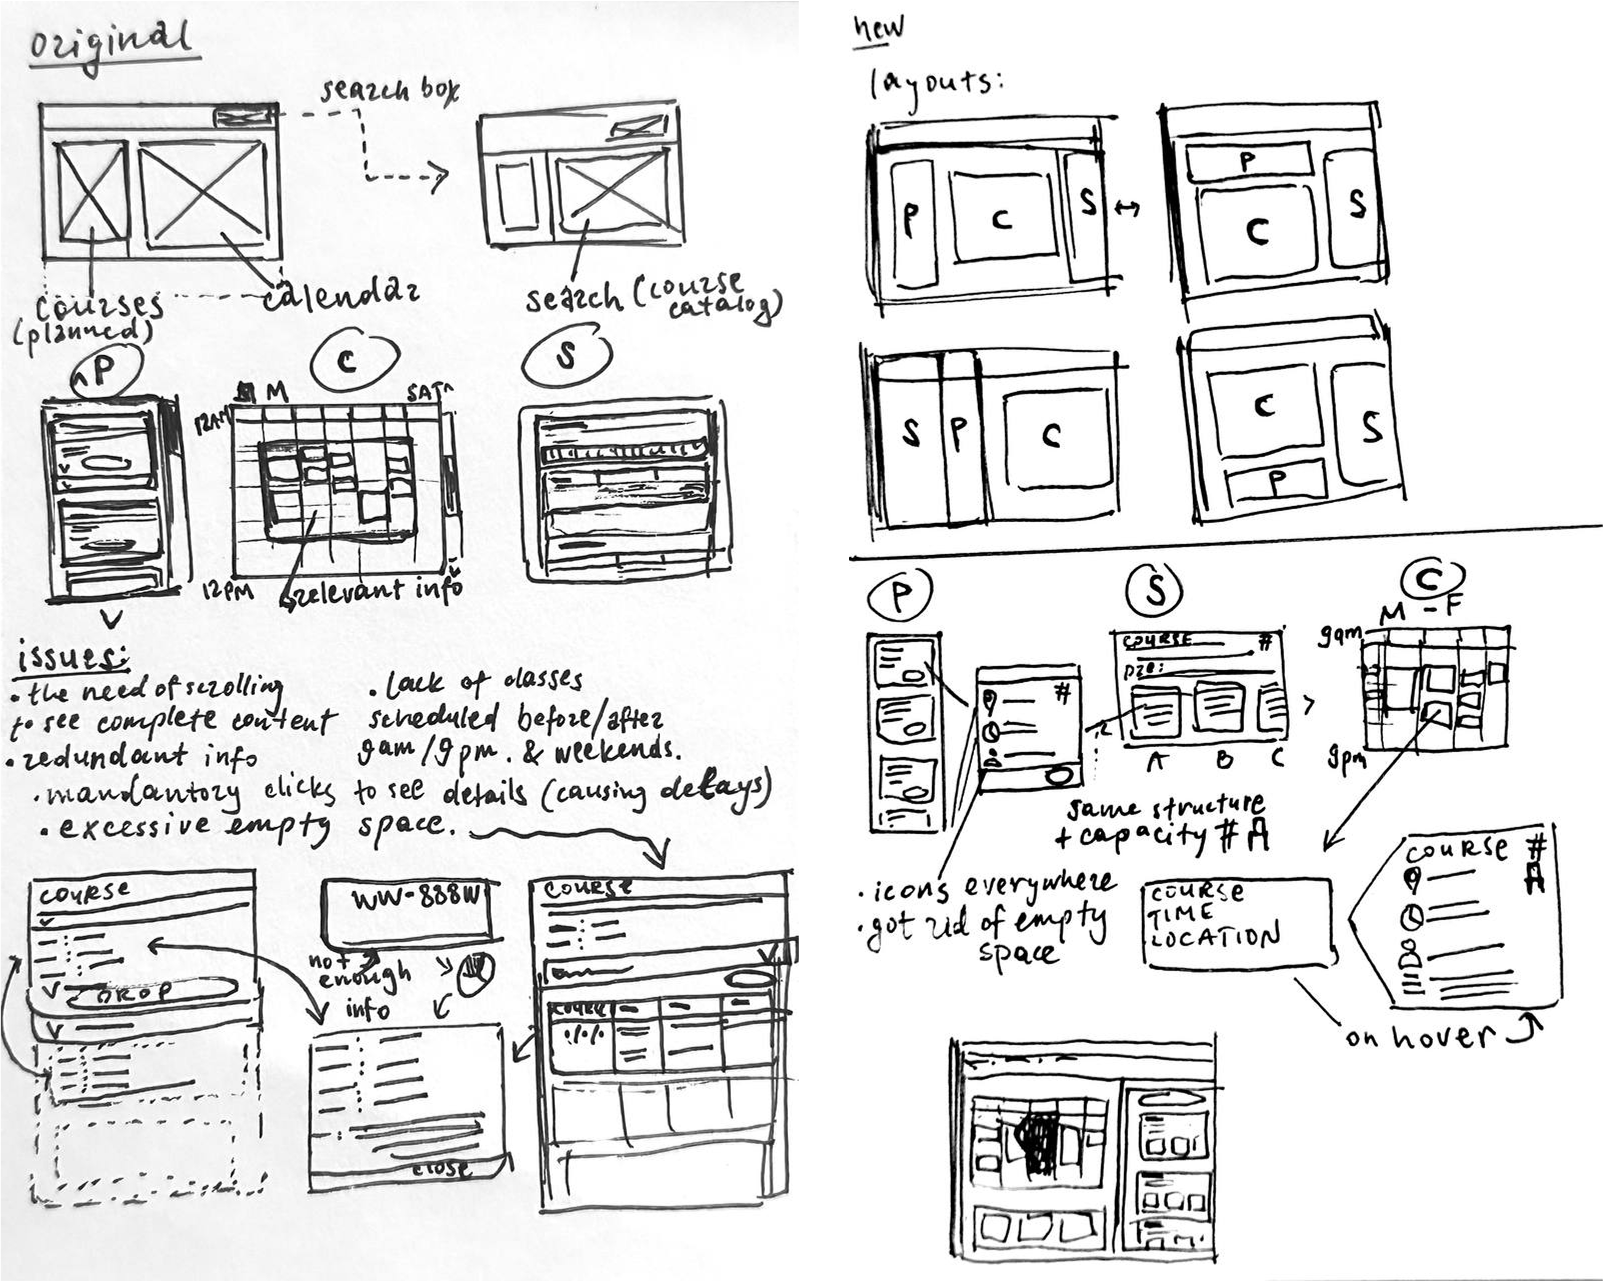 original
search box
courses
(planned)
calendar
search (course
catalog)
P
C
S
M
SAT
12AM
12PM
relevant info
issues:
• the need of scrolling
to see complete content
• redundant info
• lack of classes
scheduled before/after
9am/9pm. & weekends.
• mandantory clicks to see details (causing delays)
• excessive empty space.
COURSE
DROP
WW-888W
not
enough
info
CLOSE
COURSE
COURSE
new
layouts:
P
C
S
P
C
S
S
P
C
C
S
P
P
S
C
M - F
9am
9pm
#
COURSE
#
pre:
A
B
C
same structure
+ capacity #
• icons everywhere
• got rid of empty
space
COURSE
TIME
LOCATION
COURSE #
on hover